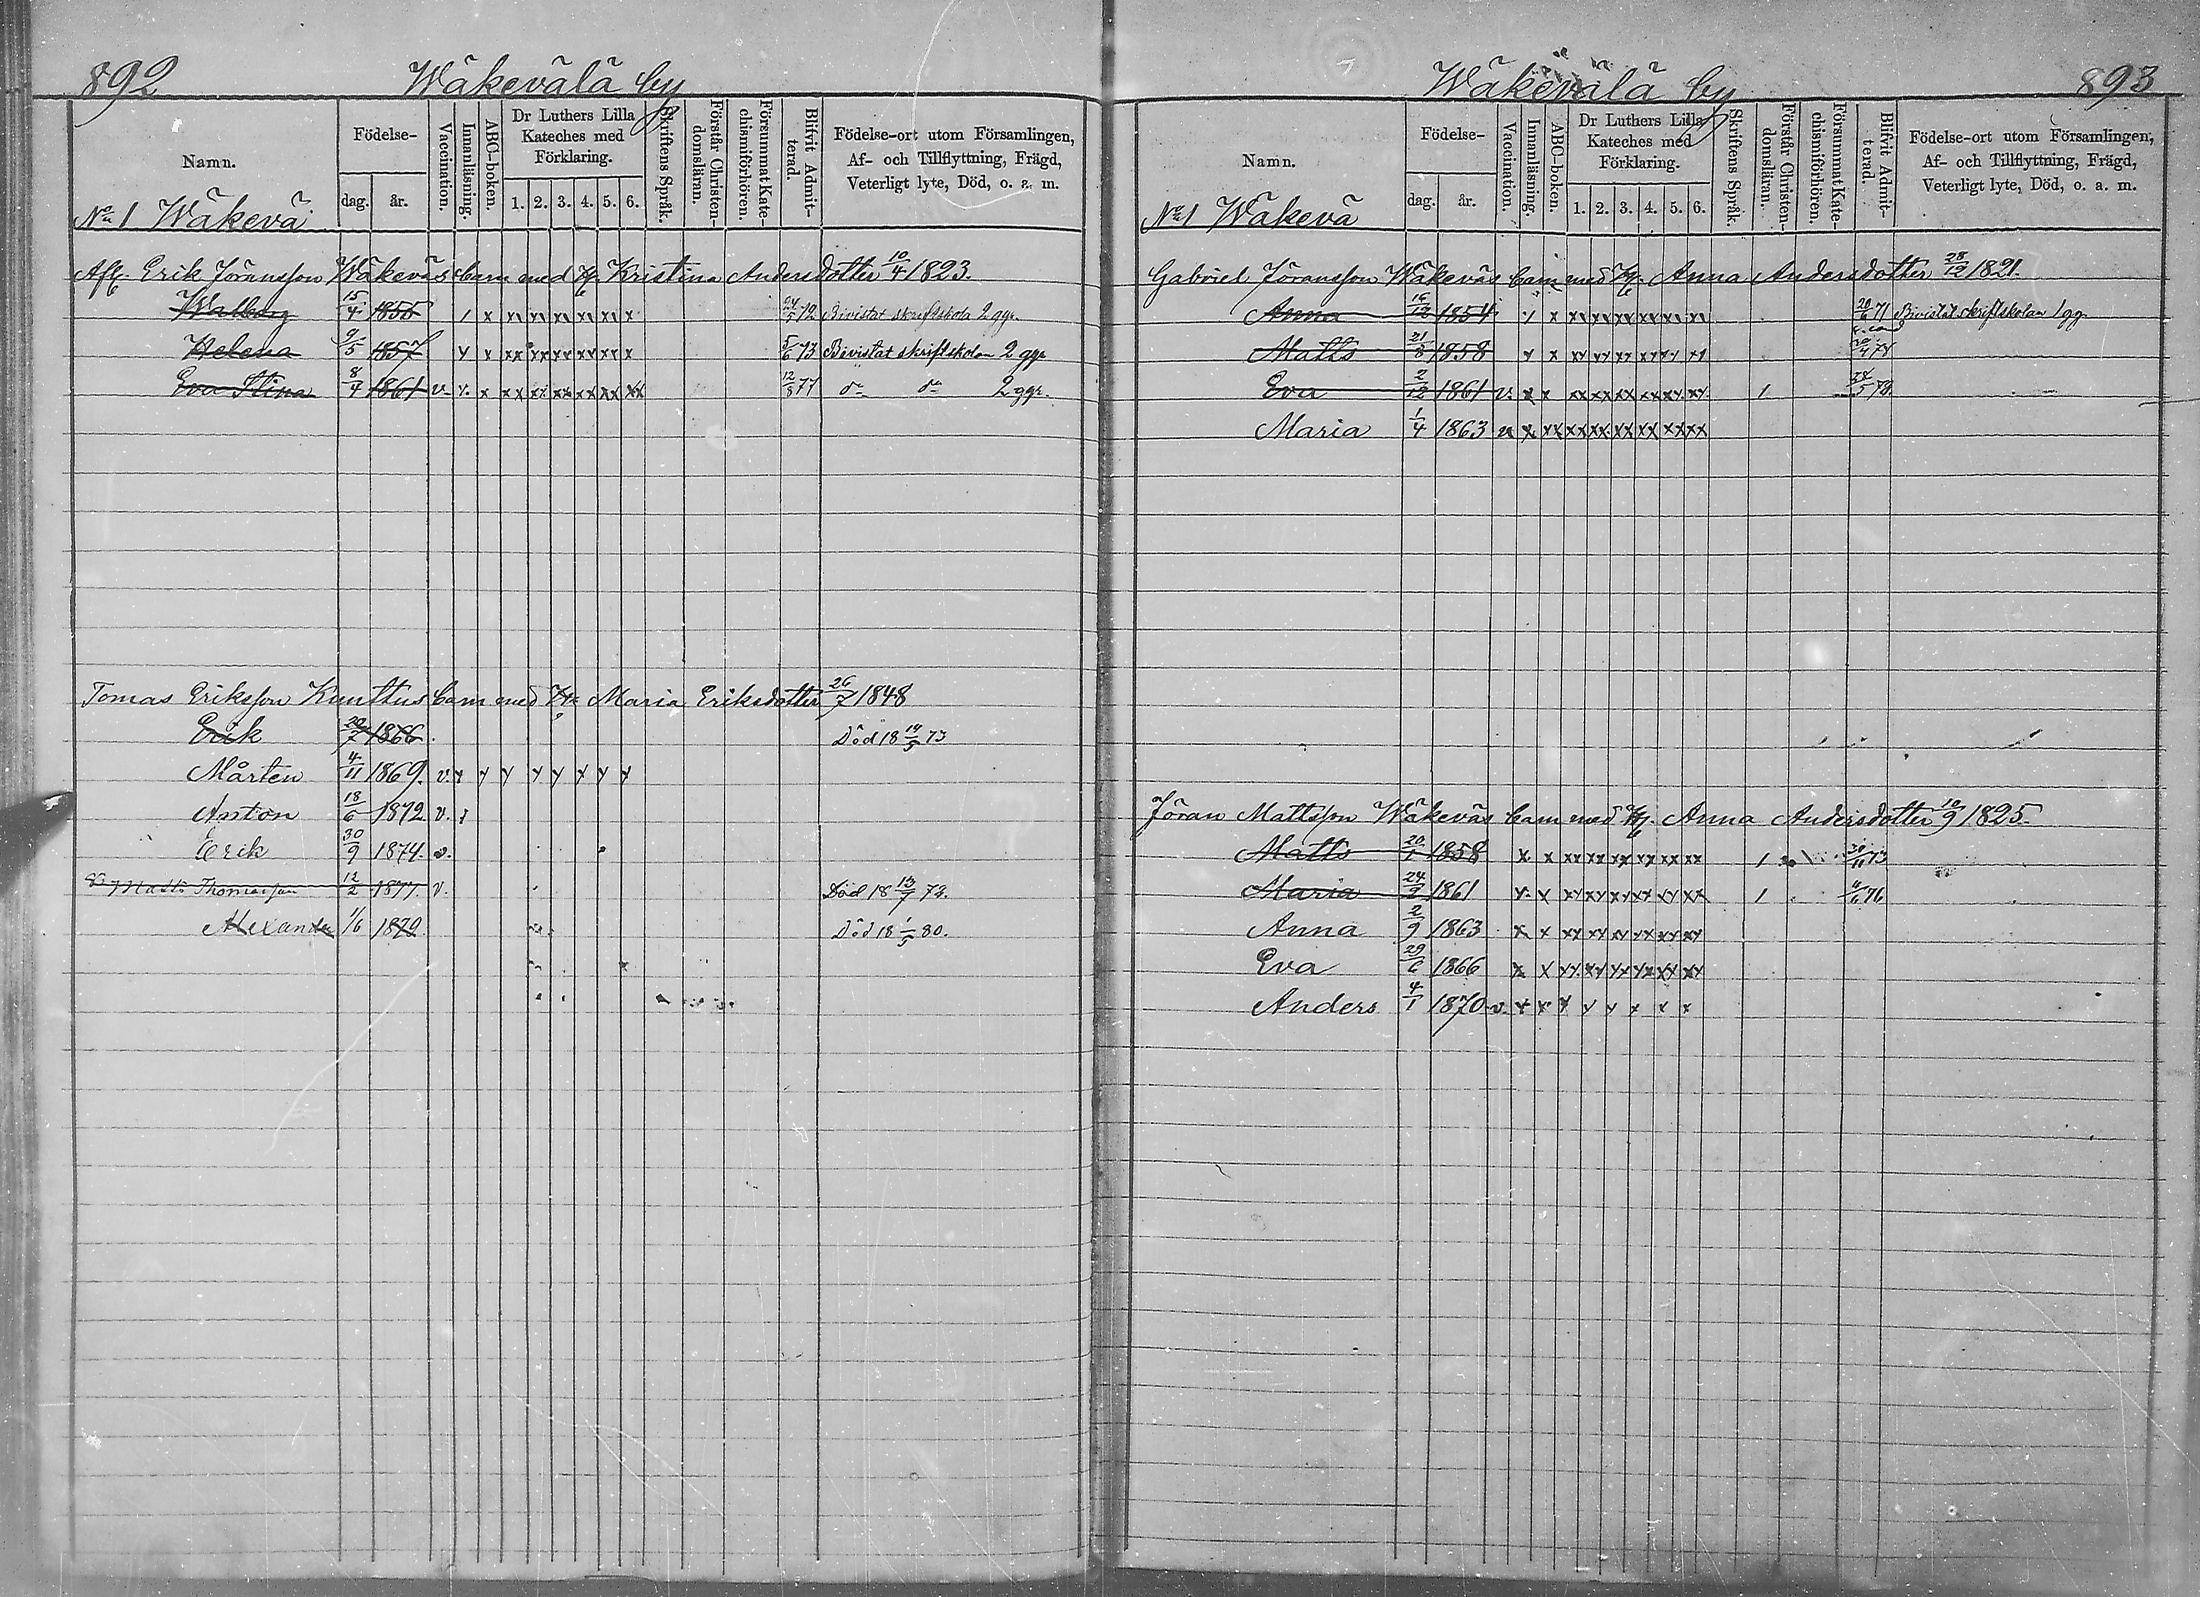 892 Wäkevälä by
Namn.
Födelse-
dag. år.
Vaccination.
Innanläsning.
ABC-boken.
Dr Luthers Lilla
Kateches med
Förklaring.
1. 2. 3. 4. 5. 6.
Skriftens Språk.
Förstår Christen-
domsläran.
Försummat Kate-
chismiförhören.
Blifvit Admit-
terad.
Födelse-ort utom Församlingen,
Af- och Tillflyttning, Frägd,
Veterligt lyte, Död, o. a. m.
No 1 Wäkevä
Afl. Erik Jöransson Wäkeväs barn med H. Kristina Andersdotter 10/4 1823.
Walborg 15/4 1855 / x xx xx xx xx xx x 24/5 72 Bivistat skriftskola 2 ggr.
Helena 9/5 1857 y x xx xx xx xx xx x 5/6 73 Bivistat skriftskolan 2 ggr
Eva Stina 8/4 1861 v. x xx xx xx xx xx xx 12/8 77 do do 2 ggr.
Tomas Eriksson Kunttus barn med H. Maria Eriksdotter 26/7 1848
Erik 1866 Död 18 14/5 73
Mårten 4/11 1869. v. x y y y y y x y y
Anton 18/6 1872 v.
Erik 30/9 1874. v.
Matts Thomasson 12/2 1877. v. Död 18 13/7 73.
Alexander 1/6 1879. Död 18 1/5 80.
Wäkevälä by 893
Namn.
Födelse-
dag. år.
Vaccination.
Innanläsning.
ABC-boken.
Dr Luthers Lilla
Kateches med
Förklaring.
1. 2. 3. 4. 5. 6.
Skriftens Språk.
Förstår Christen-
domsläran.
Försummat Kate-
chismiförhören.
Blifvit Admit-
terad.
Födelse-ort utom Församlingen,
Af- och Tillflyttning, Frägd,
Veterligt lyte, Död, o. a. m.
No 1 Wäkevä
Gabriel Jöransson Wäkeväs barn med H. Anna Andersdotter 28/12 1821.
Anna 16/12 1854 x xx xx xx xx xx xx 20/6 71 Bivistat skriftskolan 1 gg
Matts 21/8 1858 y x xy yy xx xy yy xy 74
Eva 2/12 1861 v. x x xx xx xx xx xx xx 1 24/5 78.
Maria 1/4 1863 v x xx xx xx xx xx xx xx
Jöran Mattsson Wäkeväs barn med H. Anna Andersdotter 10/9 1825.
Matts 20/1 1858 x x xx xx xx xx xx xx 1 30/11 73
Maria 24/9 1861 x x xy xy xy xx yy xx 1 4/6 76
Anna 2/9 1863 x x xx xy xx xx xx xy
Eva 29/6 1866 x x yy xy yy yx xy xy
Anders 4/1 1870 v. x x y y y x x x